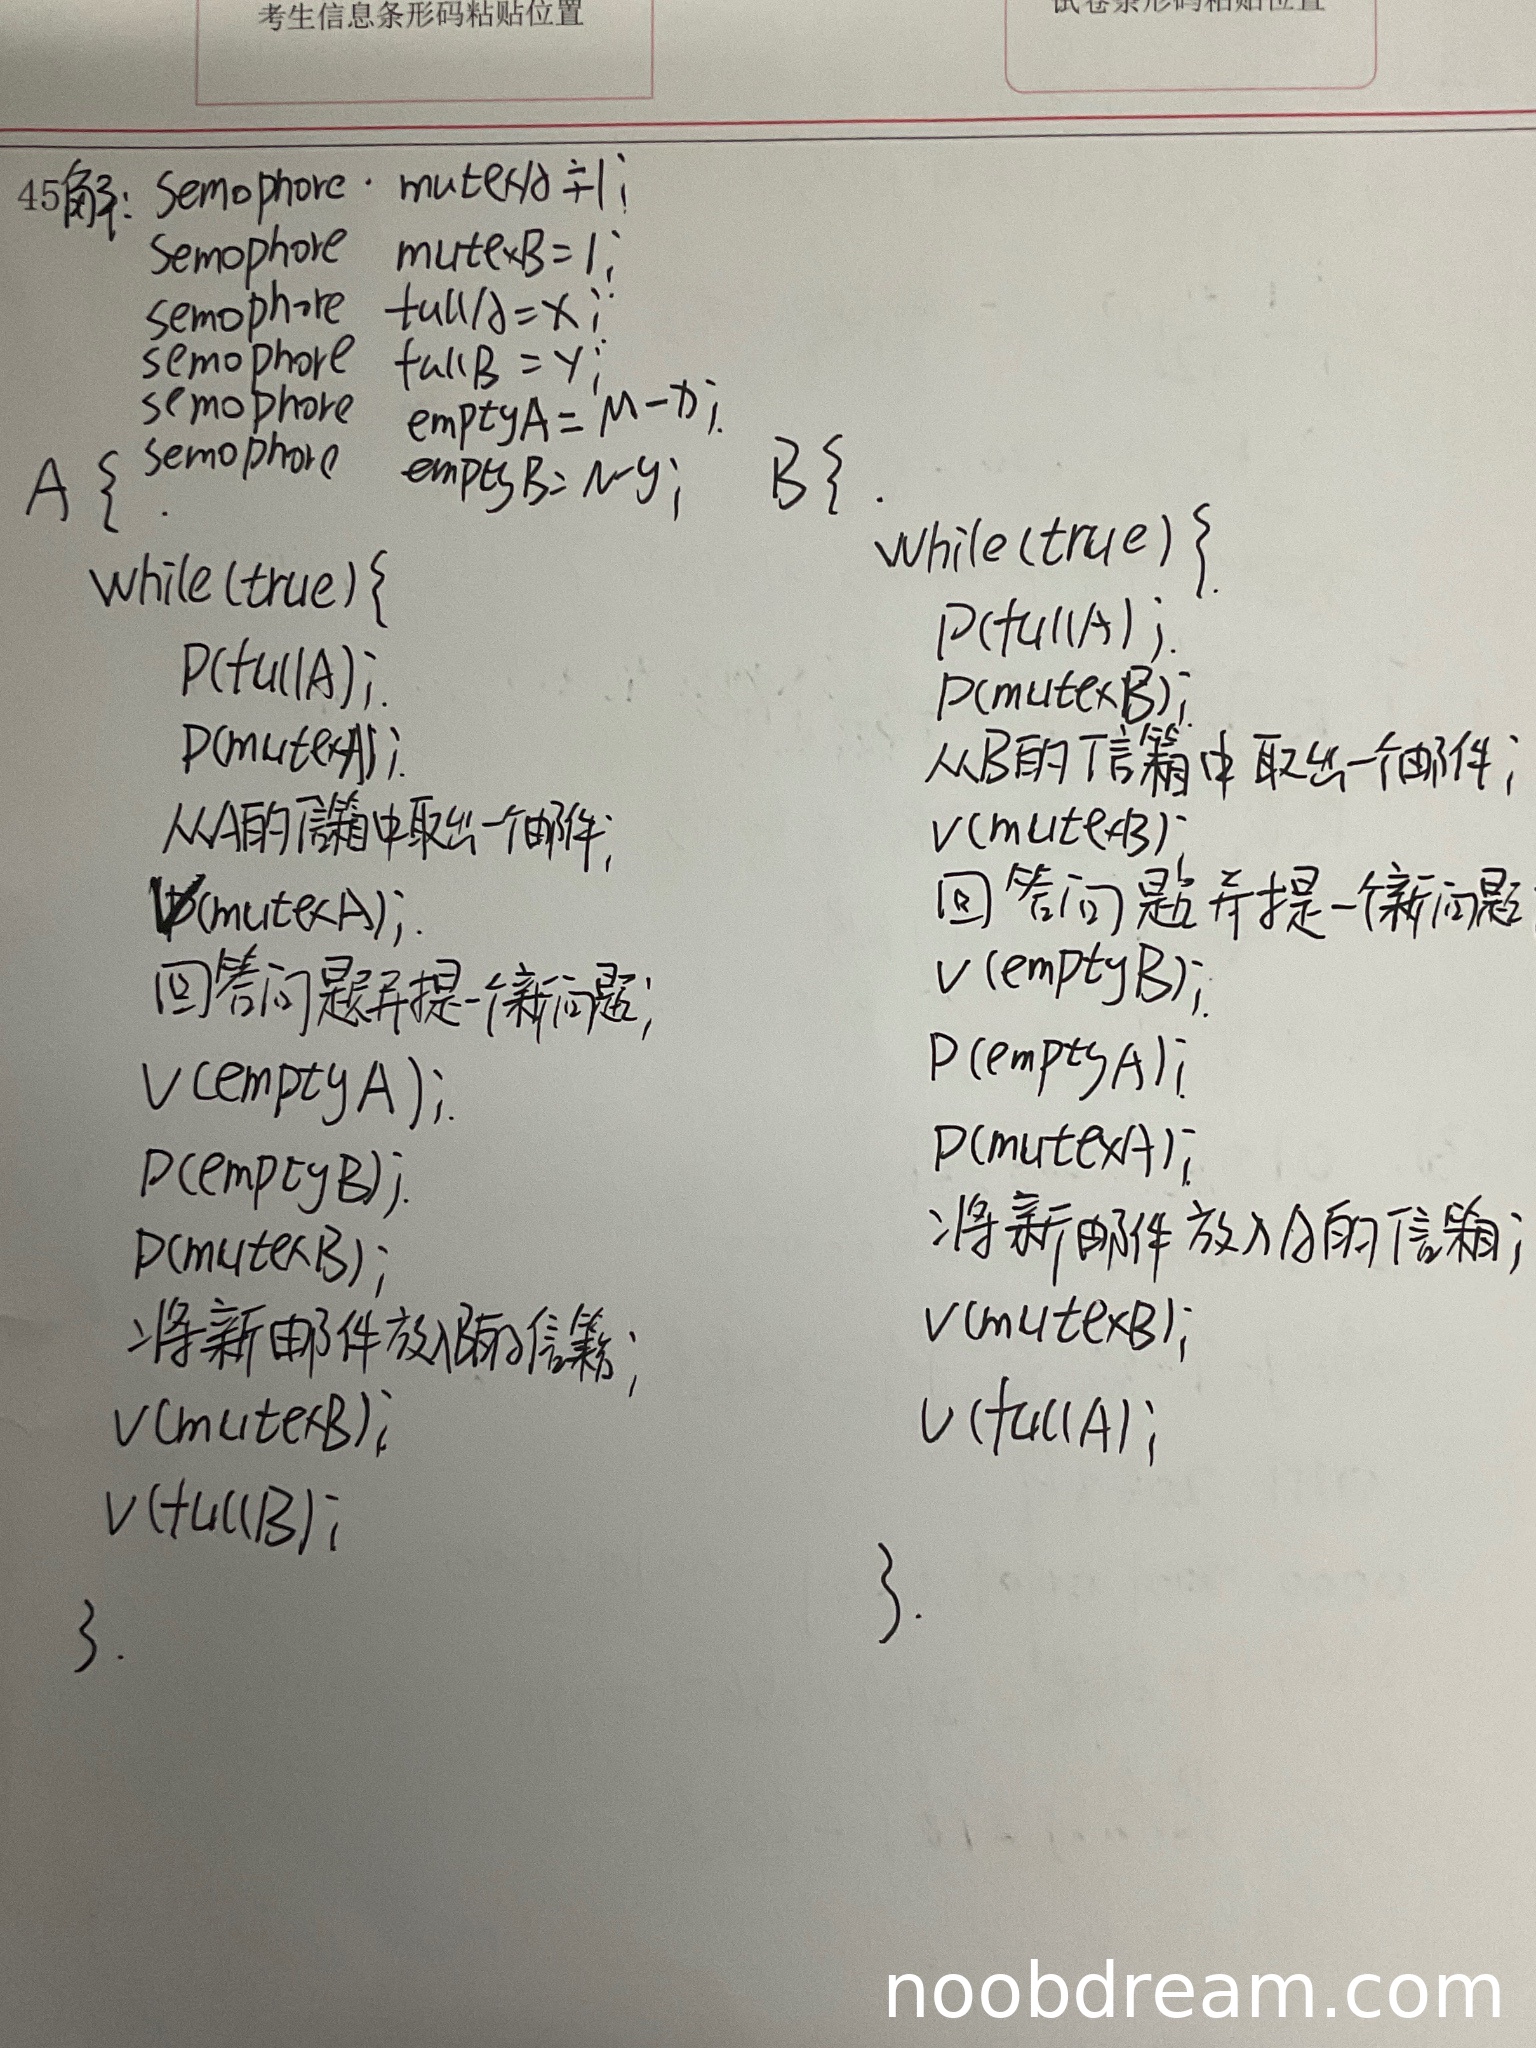 考生信息条形码粘贴位置
试卷条形码粘贴位置
45解: Semophore mutexA=1;
Semophore mutexB=1;
semophore fullA=x;
semophore fullB=y;
semophore emptyA=M-x;
semophore emptyB=N-y;
A{
while(true){
P(fullA);
P(mutexA);
从A的信箱中取出一个邮件;
V(mutexA);
回答问题并提一个新问题;
V(emptyA);
P(emptyB);
P(mutexB);
将新邮件放入B的信箱;
V(mutexB);
V(fullB);
}
B{
while(true){
P(fullA);
P(mutexB);
从B的信箱中取出一个邮件;
V(mutexB);
回答问题并提一个新问题;
V(emptyB);
P(emptyA);
P(mutexA);
将新邮件放入A的信箱;
V(mutexB);
V(fullA);
}
noobdream.com